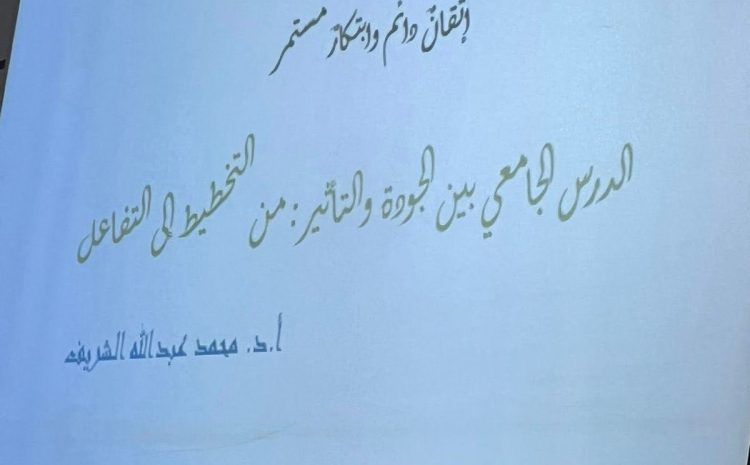 إتقانٌ دائم وابتكارٌ مستمر
الدرس الجامعي بين الجودة والتأثير: من التخطيط إلى التفاعل
أ.د. محمد عبدالله الشريف